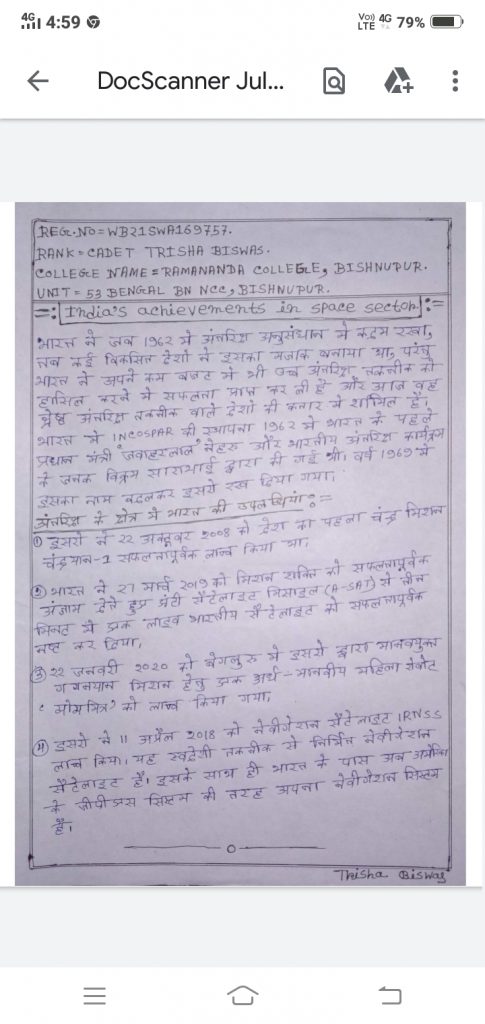 4G 4:59 Vo)) LTE 4G 79%
DocScanner Jul...
REG.NO = WB21SWA169757.
RANK = CADET TRISHA BISWAS.
COLLEGE NAME = RAMANANDA COLLEGE, BISHNUPUR.
UNIT = 53 BENGAL BN NCC, BISHNUPUR.
=: India's achievements in space sector :=
भारत ने जब 1962 में अंतरिक्ष अनुसंधान में कदम रखा,
तब कई विकसित देशों ने इसका मजाक बनाया था, परंतु
भारत ने अपने कम बजट में भी उच्च अंतरिक्ष तकनीक को
हासिल करने में सफलता प्राप्त कर ली है और आज वह
श्रेष्ठ अंतरिक्ष तकनीक वाले देशों की कतार में शामिल है।
भारत में INCOSPAR की स्थापना 1962 में भारत के पहले
प्रधान मंत्री जवाहरलाल नेहरु और भारतीय अंतरिक्ष कार्यक्रम
के जनक विक्रम साराभाई द्वारा की गई थी। वर्ष 1969 में
इसका नाम बदलकर इसरो रख दिया गया।
अंतरिक्ष के क्षेत्र में भारत की उपलब्धियां :=
① इसरो ने 22 अक्टूबर 2008 को देश का पहला चंद्र मिशन
चंद्रयान-1 सफलतापूर्वक लान्च किया था।
② भारत ने 27 मार्च 2019 को मिशन शक्ति को सफलतापूर्वक
अंजाम देते हुए एंटी सैटेलाइट मिसाइल (A-SAT) से तीन
मिनट में एक लाइव भारतीय सैटेलाइट को सफलतापूर्वक
नष्ट कर दिया।
③ 22 जनवरी 2020 को बेंगलुरु में इसरो द्वारा मानवयुक्त
गगनयान मिशन हेतु एक अर्ध-मानवीय महिला रोबोट
'व्योममित्र' को लान्च किया गया।
④ इसरो ने 11 अप्रैल 2018 को नेवीगेशन सैटेलाइट IRNSS
लान्च किया। यह स्वदेशी तकनीक से निर्मित नेवीगेशन
सैटेलाइट है। इसके साथ ही भारत के पास अब अमेरिका
के जीपीएस सिस्टम की तरह अपना नेवीगेशन सिस्टम
है।
Trisha Biswas